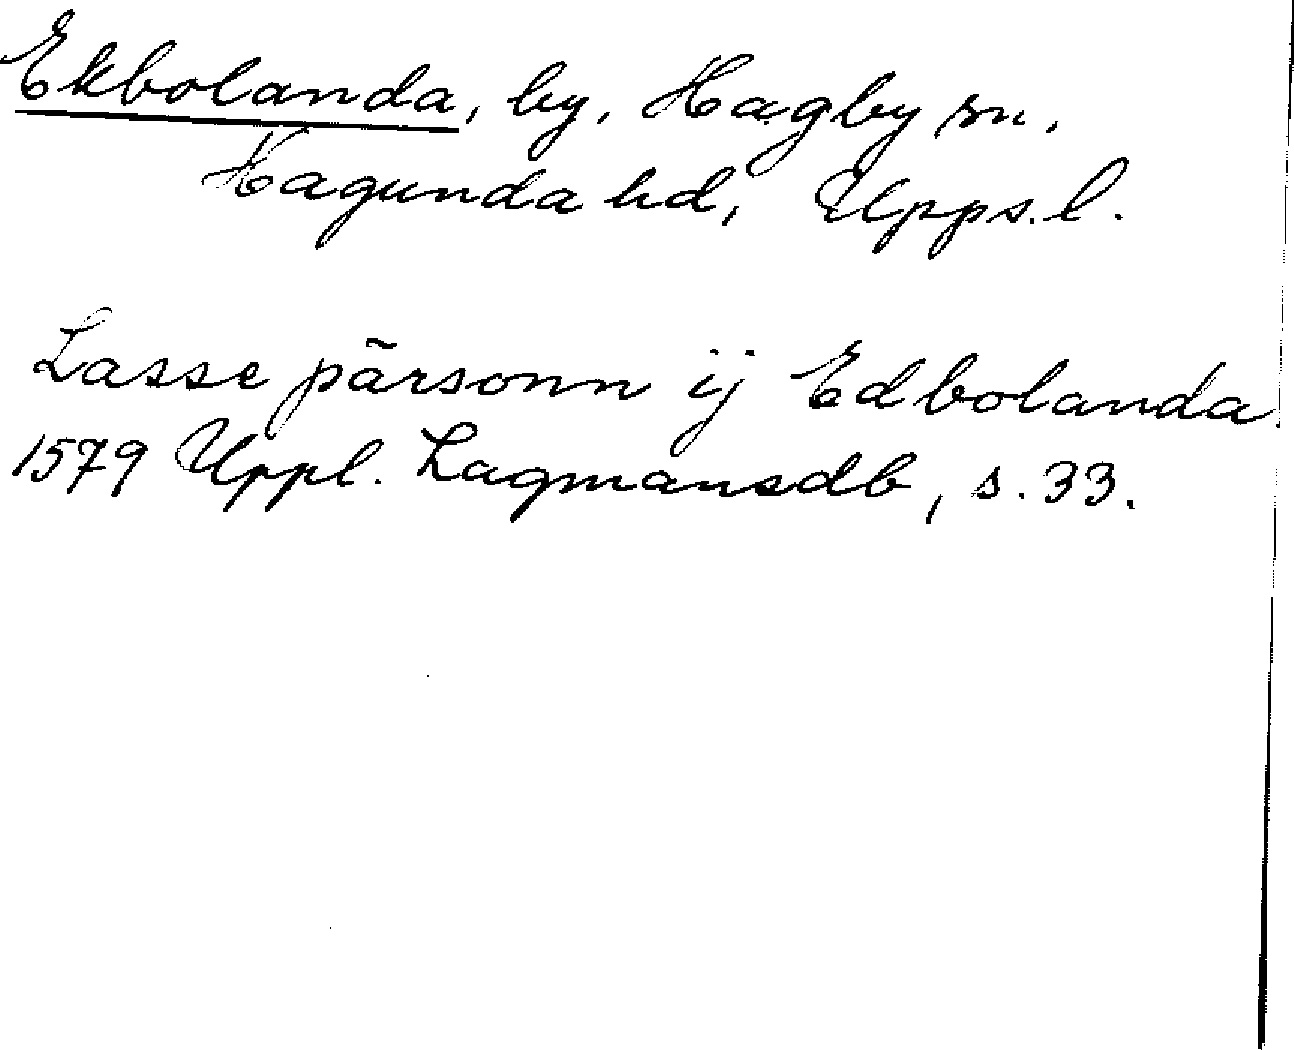 Ekbolanda, by, Hagby sn,
Hagunda hd, Upps.l.
Lasse pärsonn ij Edbolanda
1579 Uppl. Lagmansdb, s. 33.